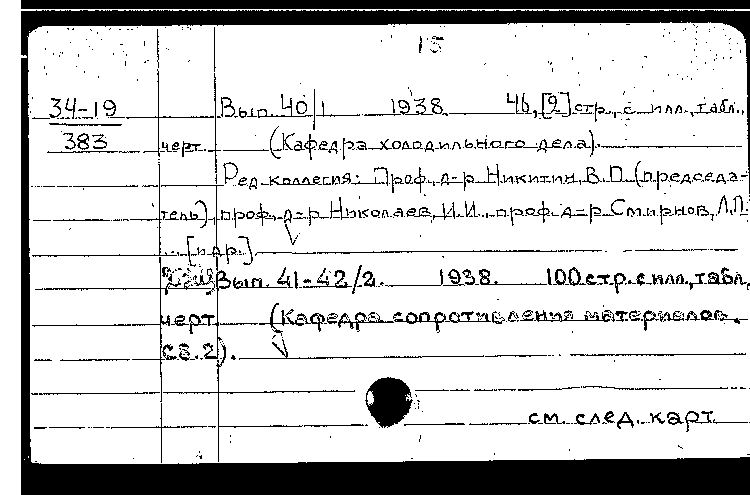 15
34-19 Вып. 40/1 1938. 46, [2] стр., с илл., табл.,
383 черт. (Кафедра холодильного дела).
Ред. коллегия: Проф. д-р Никитин, В.П. (председа-
тель), проф. д-р Николаев, И.И., проф. д-р Смирнов, Л.П.
... [и др.]
Вып. 41-42/2. 1938. 100 стр. с илл., табл.,
черт. (Кафедра сопротивления материалов.
Сб. 2).
см. след. карт.